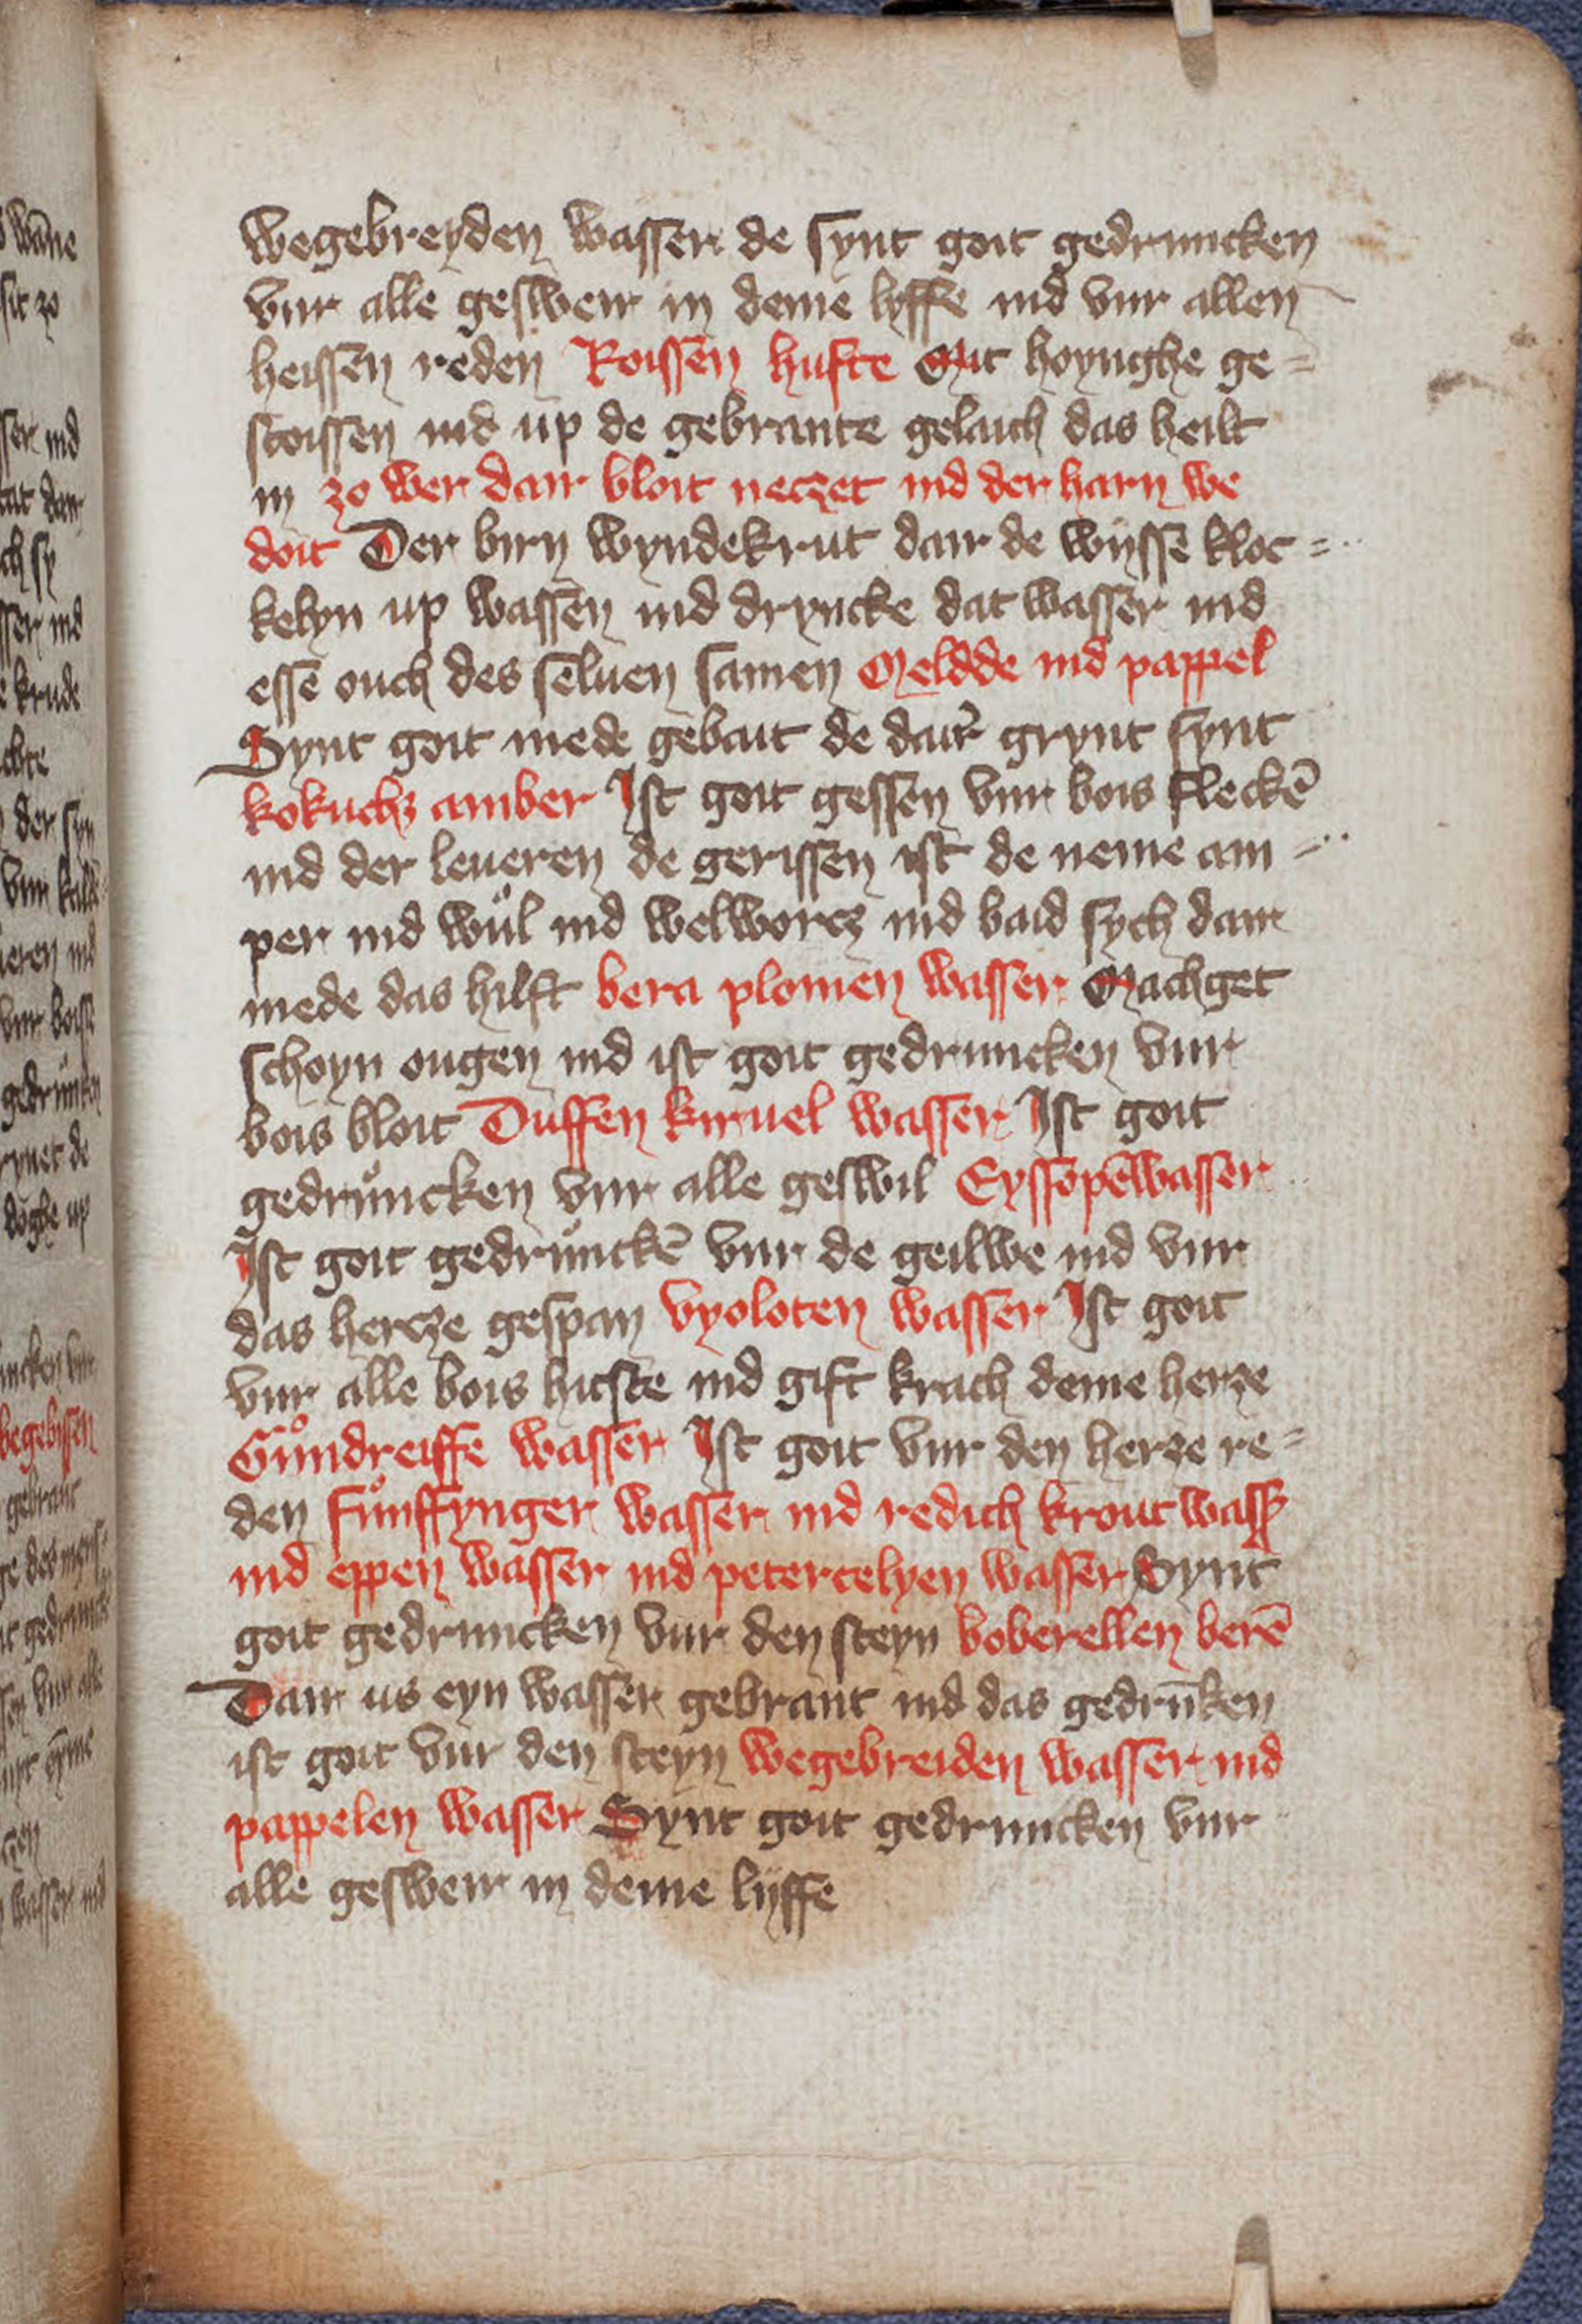 wegebreyden wasser de synt goit gedruncken
vur alle gesweir in deme lyffe ind vur allen
heissen reden Roissen hufte Mit hoynghe ge=
stoissen ind up de gebrante gelaich das heilt
in zo wer dair bloit neczet ind der harn we
doit Der birn wyndekrut dair de wysse̅ kloc=
kelyn up wassen ind dryncke dat wasser ind
esse̅ ouch des seluen samen Meldde ind pappel
Synt goit mede gebait de dair grynt synt
kokuchz amber Ist goit gessen vur bois flecke̅
ind der leueren de gerissen ist de neme am-
per ind wůl ind welworcz ind baid sych dair
mede das hilft bera plomen wasser Machget
schoyn ougen ind ist goit gedruncken vur
bois bloit Duffen kiruel wasser Ist goit
gedrůncken vur alle geswil Eyssope̅wasser
Ist goit gedrůncke̅ vur de geilwe ind vur
das hercze gespan vyoloten wasser Ist goit
vur alle bois hicste ind gift krach deme herze
Gůndreiffe wasser Ist goit vur den herze re=
den fůnffynger wasser ind redich krout wass
ind eppen wasser ind petercelyen wasser Synt
goit gedruncken vur den steyn boberellen bere̅
Dair us eyn wasser gebrant ind das gedru̅ken
ist goit vur den steyn wegebreiden wasser ind
pappelen wasser Synt goit gedruncken vur
alle gesweir in deme lyffe